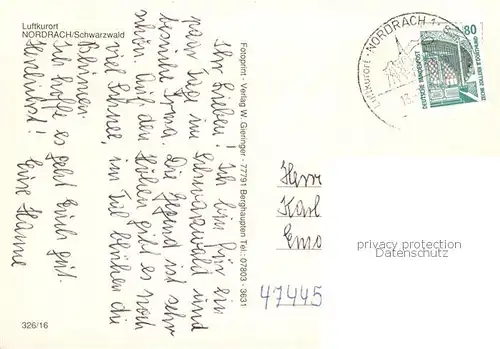 Luftkurort
NORDRACH/Schwarzwald
Ihr Lieben! Ich bin für ein
paar Tage im Schwarzwald und
besuche Irma. Die Gegend ist sehr
schön. Auf den Höhen gibt es noch
viel Schnee, im Tal blühen die
Blumen.
Ich hoffe es geht Euch gut.
Herzlichst! Eure Hanne
326/16
Fotoprint - Verlag W. Gieringer - 77791 Berghaupten Tel.: 07803 - 3631
Luftkurort · NORDRACH
80
DEUTSCHE BUNDESPOST
ZECHE ZOLLERN II
Herr
Karl
Emo
47445
privacy protection
Datenschutz